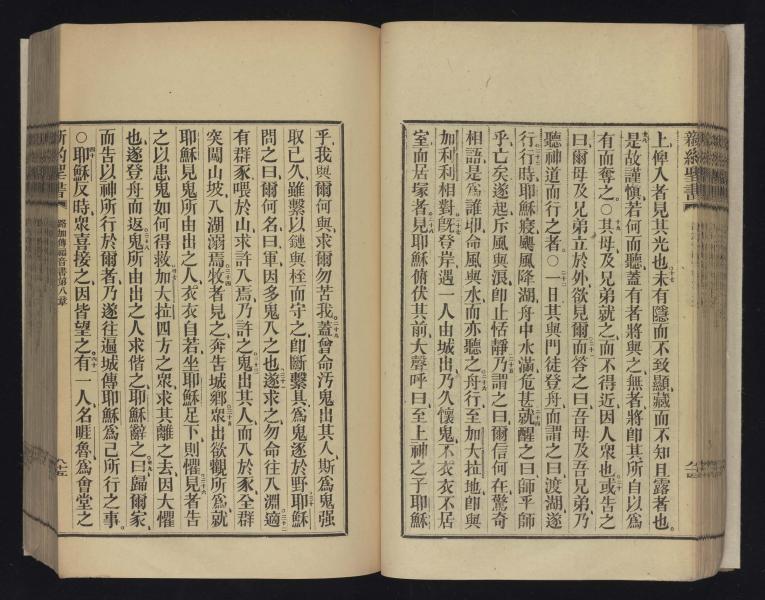 新約聖書
上俾人者見其光也未有隱而不致顯藏而不知且露者也
十七
是故謹慎若何而聽蓋有者將與之無者將即其所自以爲
十八
有而奪之○其母及兄弟就之而不得近因人衆也或告之
十九
二十
曰爾母及兄弟立於外欲見爾而答之曰吾母及吾兄弟乃
二十一
聽神道而行之者○一日其與門徒登舟而謂之曰渡湖遂
二十二
行行時耶穌寢颶風降湖舟中水滿危甚就醒之曰師乎師
二十三
二十四
乎亡矣遂起斥風與浪即止恬靜乃謂之曰爾信何在驚奇
二十五
相語是爲誰耶命風與水而亦聽之舟行至加大拉地即與
二十六
加利利相對既登岸遇一人由城出乃久懷鬼不衣衣不居
二十七
室而居塚者見耶穌俯伏其前大聲呼曰至上神之子耶穌
二十八
乎我與爾何與求爾勿苦我蓋曾命汚鬼出其人斯爲鬼强
二十九
取已久雖繫以鏈與桎而守之即斷繫具爲鬼逐於野耶穌
三十
問之曰爾何名曰軍因多鬼入之也遂求之勿命往入淵適
三十一
三十二
有群豕喂於山求許入焉乃許之鬼出其人而入於豕全群
三十三
突闖山坡入湖溺焉牧者見之奔告城鄉衆出欲觀所爲就
三十四
三十五
耶穌見鬼所由出之人衣衣自若坐耶穌足下則懼見者告
三十六
之以患鬼如何得救加大拉四方之衆求其離之去因大懼
三十七
也遂登舟而返鬼所由出之人求偕之耶穌辭之曰歸爾家
三十八
三十九
而告以神所行於爾者乃遂往遍城傳耶穌爲己所行之事
○耶穌反時衆喜接之因皆望之有一人名睚魯爲會堂之
四十
四十一
新約聖書
路加傳福音書第八章